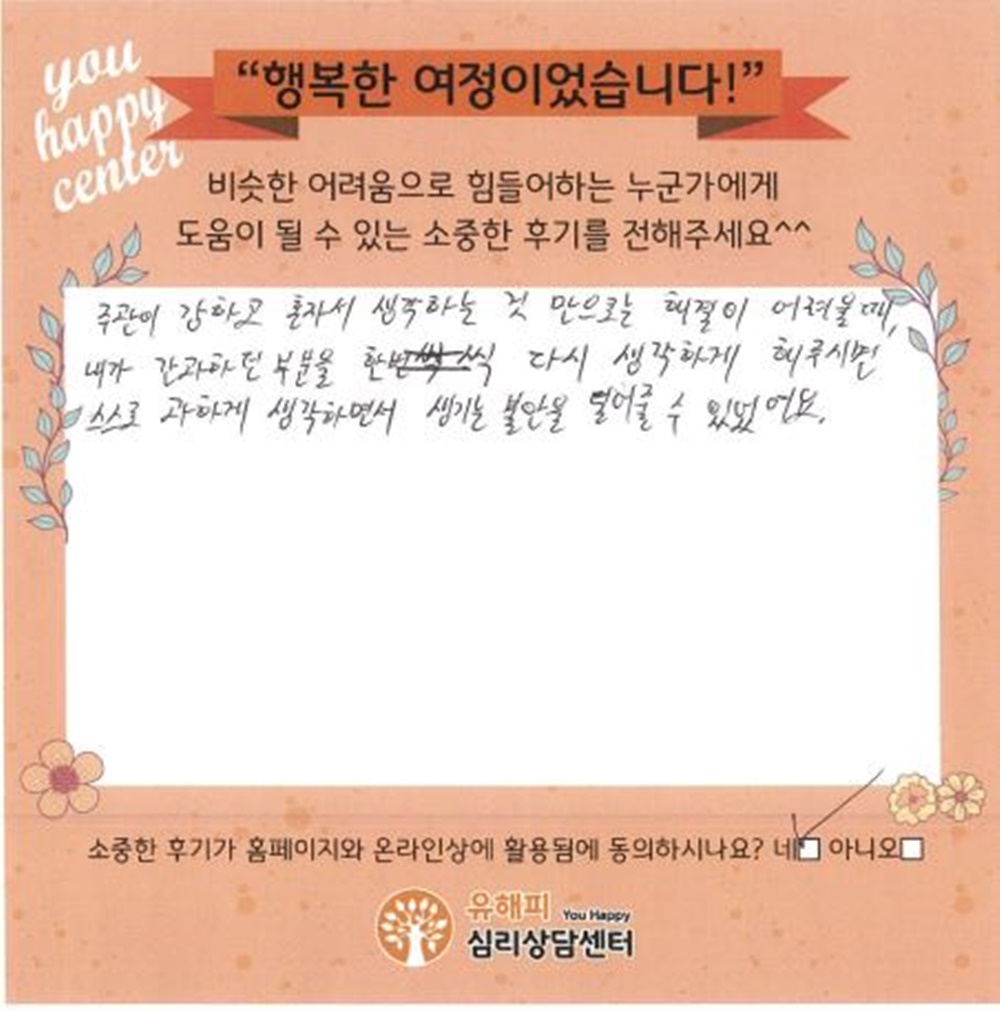 you
happy
center
“행복한 여정이었습니다!”
비슷한 어려움으로 힘들어하는 누군가에게
도움이 될 수 있는 소중한 후기를 전해주세요^^
주관이 강하고 혼자서 생각하는 것 만으로는 해결이 어려울때,
내가 간과하던 부분을 한번씩 다시 생각하게 해주시면
스스로 과하게 생각하면서 생기는 불안을 덜어줄 수 있었어요.
소중한 후기가 홈페이지와 온라인상에 활용됨에 동의하시나요? 네□ 아니오□
유해피 You Happy
심리상담센터